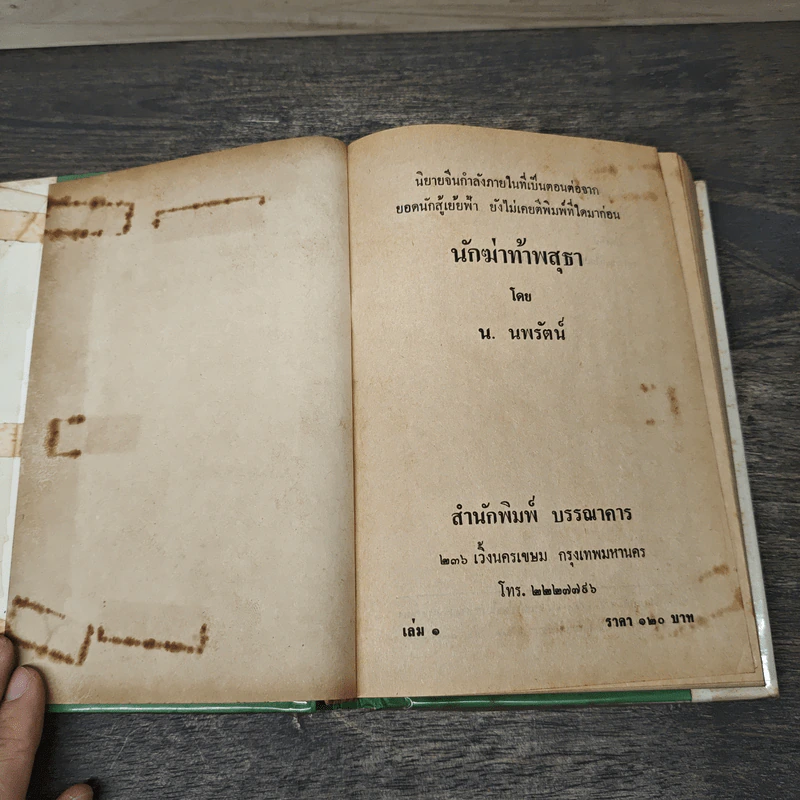 นิยายจีนกำลังภายในที่เป็นตอนต่อจาก
ยอดนักสู้เย้ยฟ้า ยังไม่เคยตีพิมพ์ที่ใดมาก่อน
นักฆ่าท้าพสุธา
โดย
น. นพรัตน์
สำนักพิมพ์ บรรณาคาร
๒๓๖ เวิ้งนครเขษม กรุงเทพมหานคร
โทร. ๒๒๒๗๗๙๖
เล่ม ๑ ราคา ๑๒๐ บาท